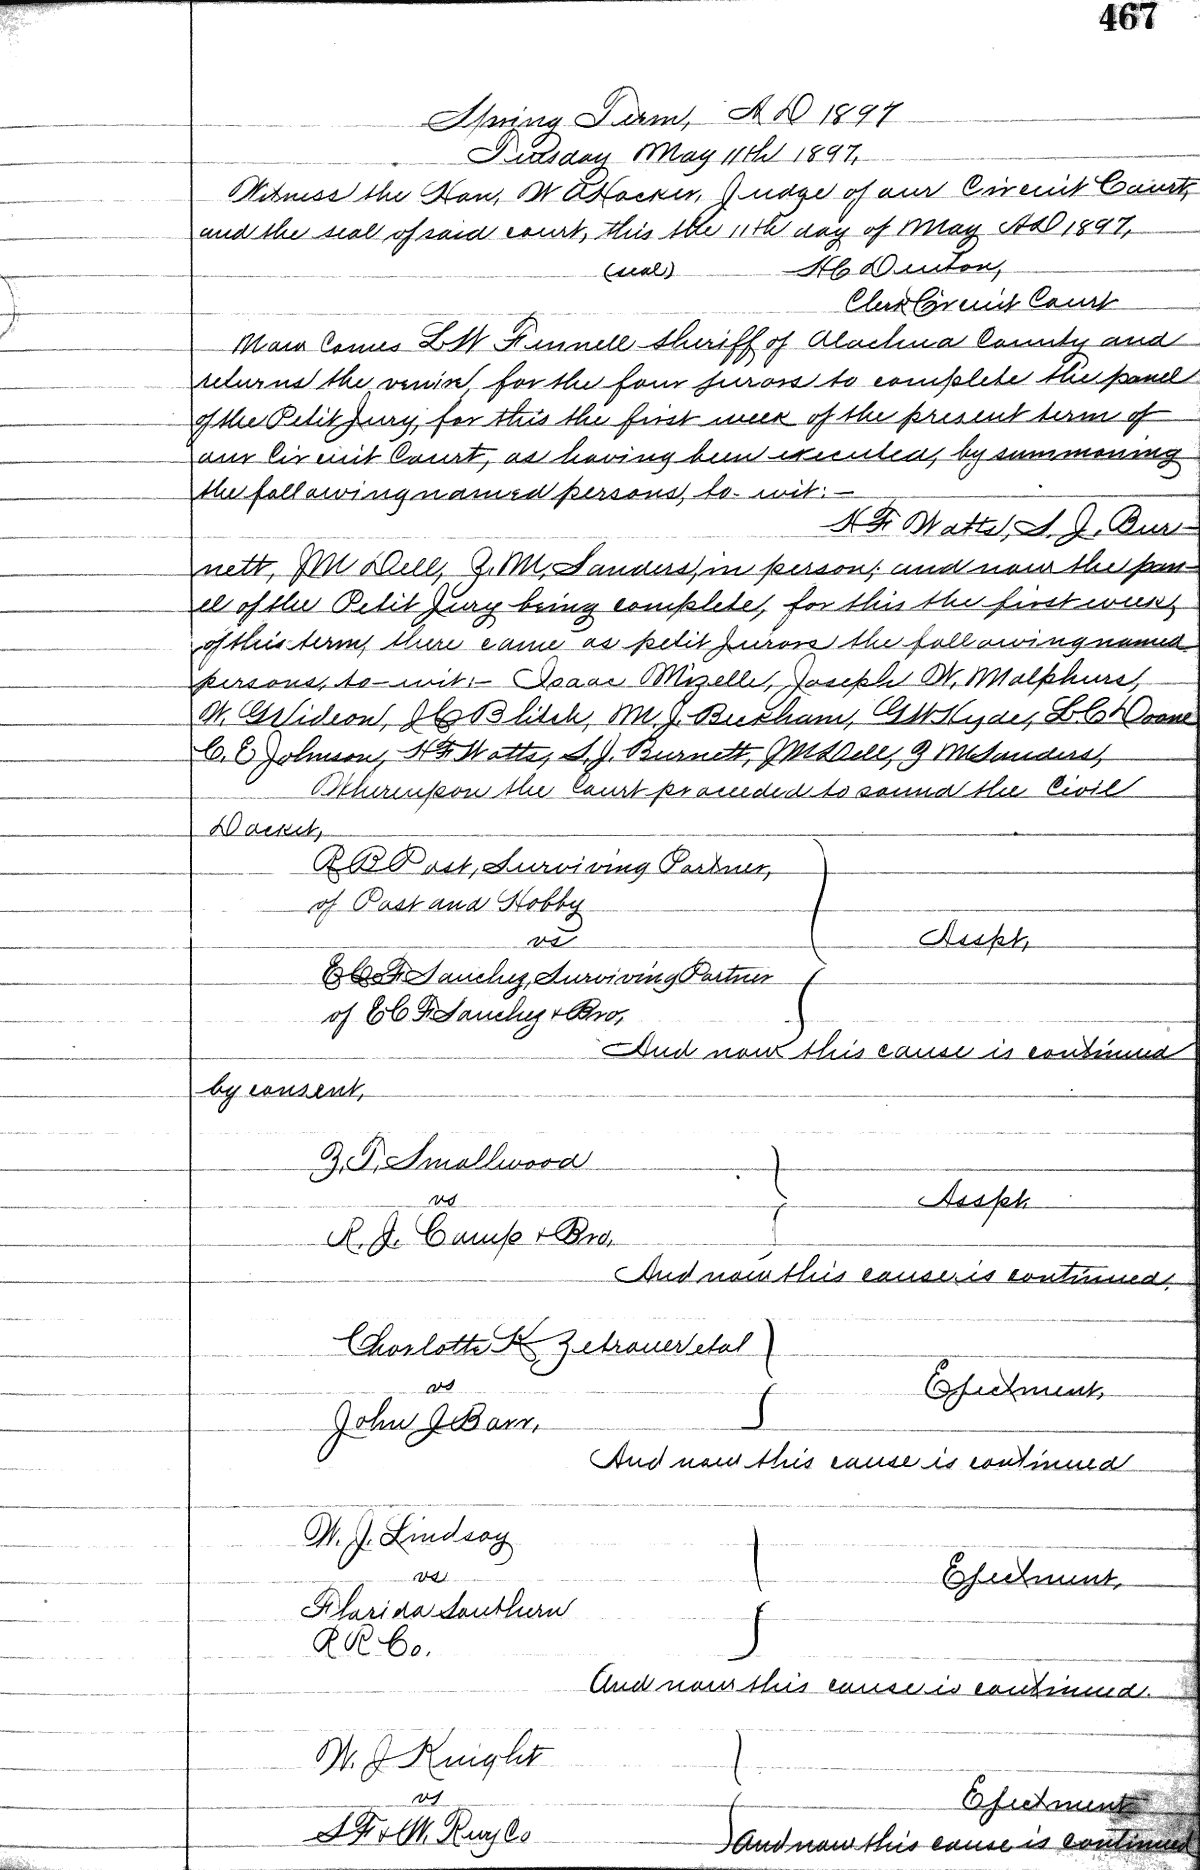 467
Spring Term, A D 1897
Tuesday May 11th 1897,
Witness the Hon, W A Hocker, Judge of our Circuit Court,
and the seal of said court, this the 11th day of May A D 1897,
(seal) H C Denton,
Clerk Circuit Court
Now Comes L W Fennell Sheriff of Alachua County and
returns the venire, for the four jurors to complete the panel
of the Petit Jury, for this the first week of the present term of
our Circuit Court, as having been executed, by summoning
the following named persons, to-wit:-
H F Watts, S. J. Bur-
nett, J M Dell, Z. M. Sanders, in person; and now the pan-
el of the Petit Jury being complete, for this the first week,
of this term, there came as petit jurors the following named
persons, to-wit:- Isaac Mizelle, Joseph W. Malphurs,
W. Gideon, J C Blitch, M. J. Beckham, G W Hyde, L C Doane
C. E Johnson, H F Watts, S. J. Burnett, J M Dell, Z M Sanders,
Whereupon the Court proceeded to sound the Civil
Docket,
R B Post, Surviving Partner,
of Post and Hobby
vs Asspt,
E C F Sanchez, Surviving Partner
of E C F Sanchez & Bro,
And now this cause is continued
by consent,
Z. T. Smallwood
vs Asspt
R. J. Camp & Bro,
And now this cause is continued,
Charlotte K Zetrouer et al
vs Ejectment,
John J Barr,
And now this cause is continued
W. J. Lindsay
vs Ejectment,
Florida Southern
R R Co.
And now this cause is continued.
W. J Knight
vs Ejectment
S F & W. Rwy Co And now this cause is continued